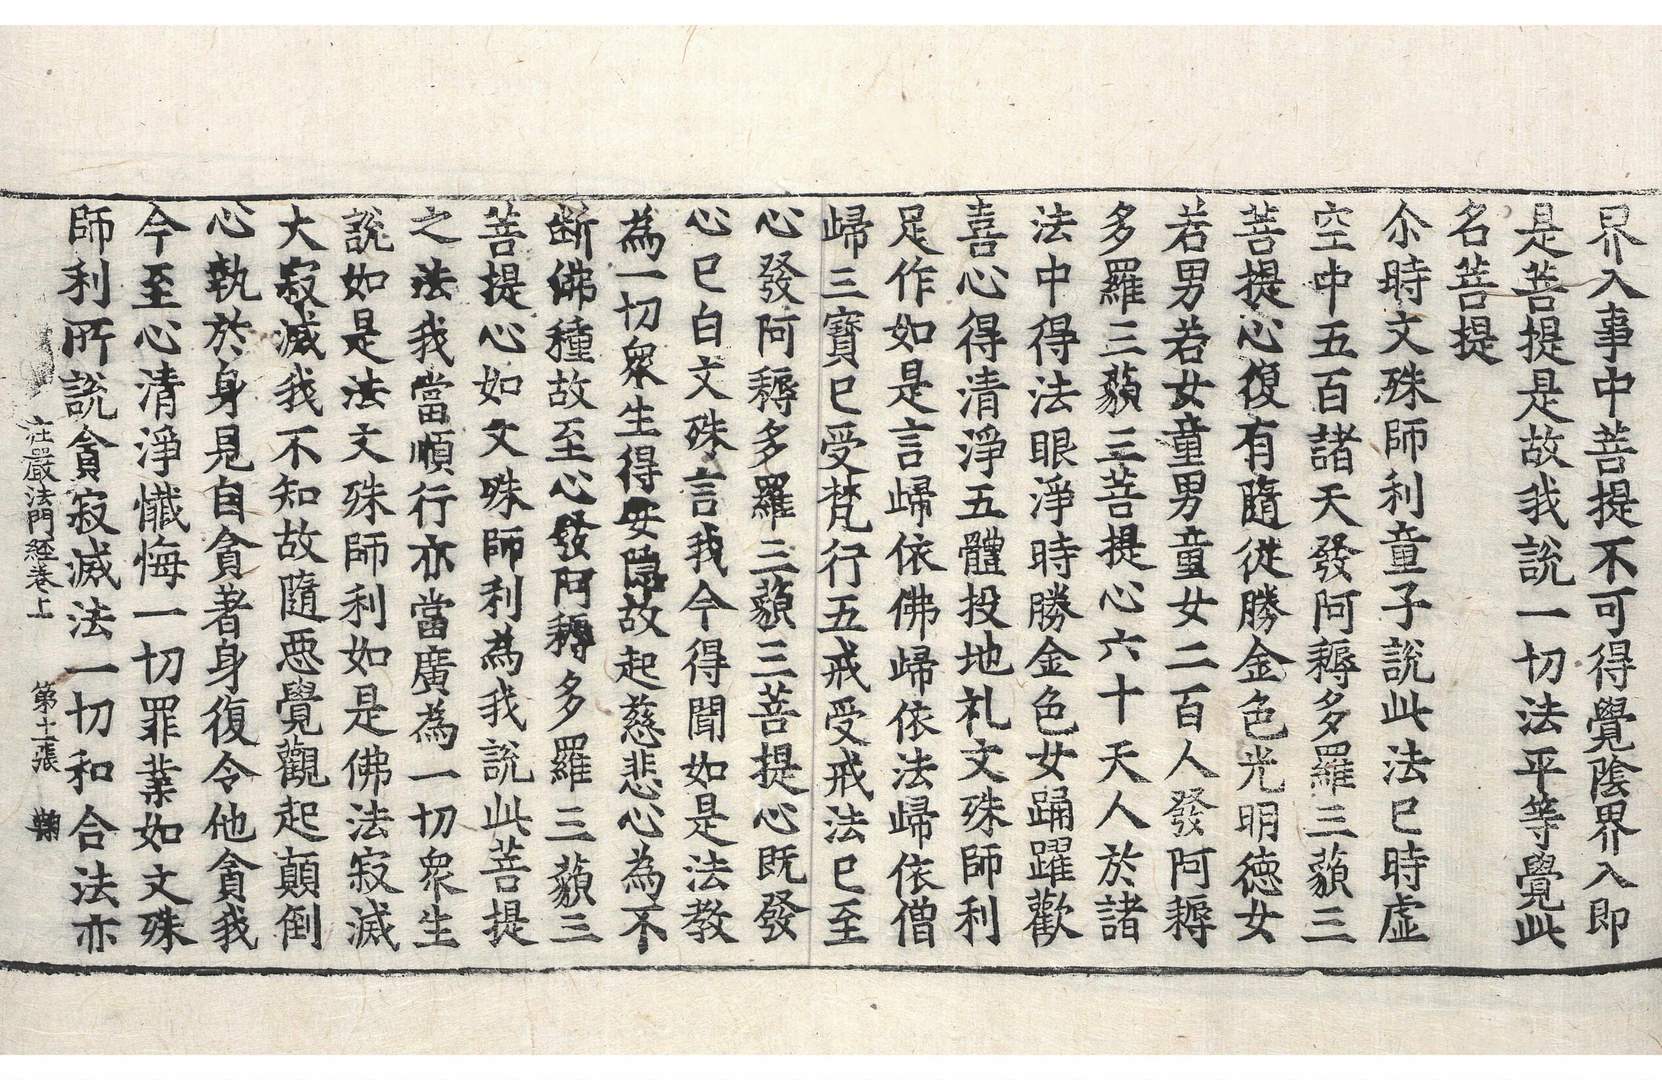 界入事中菩提不可得覺陰界入即
是菩提是故我說一切法平等覺此
名菩提
尒時文殊師利童子說此法已時虛
空中五百諸天發阿耨多羅三藐三
菩提心復有隨從勝金色光明德女
若男若女童男童女二百人發阿耨
多羅三藐三菩提心六十天人於諸
法中得法眼淨時勝金色女踊躍歡
喜心得清淨五體投地礼文殊師利
足作如是言歸依佛歸依法歸依僧
歸三寶已受梵行五戒受戒法已至
心發阿耨多羅三藐三菩提心既發
心已白文殊言我今得聞如是法教
為一切衆生得安隱故起慈悲心為不
断佛種故至心發阿耨多羅三藐三
菩提心如文殊師利為我說此菩提
之法我當順行亦當廣為一切衆生
說如是法文殊師利如是佛法寂滅
大寂滅我不知故隨惡覺觀起顛倒
心執於身見自貪著身復令他貪我
今至心清淨懺悔一切罪業如文殊
師利所說貪寂滅法一切和合法亦
庄嚴法門経卷上 第十一張 鞠